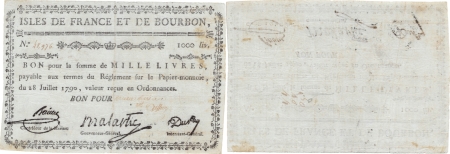 ISLES DE FRANCE ET DE BOURBON,
N.° 1000 liv.
BON pour la somme de MILLE LIVRES,
payable aux termes du Réglement sur le Papier-monnaie,
du 28 Juillet 1790, valeur reçue en Ordonnances.
BON POUR
Malartic
Contrôleur de la Marine Gouverneur-Général. Intendant-Général.